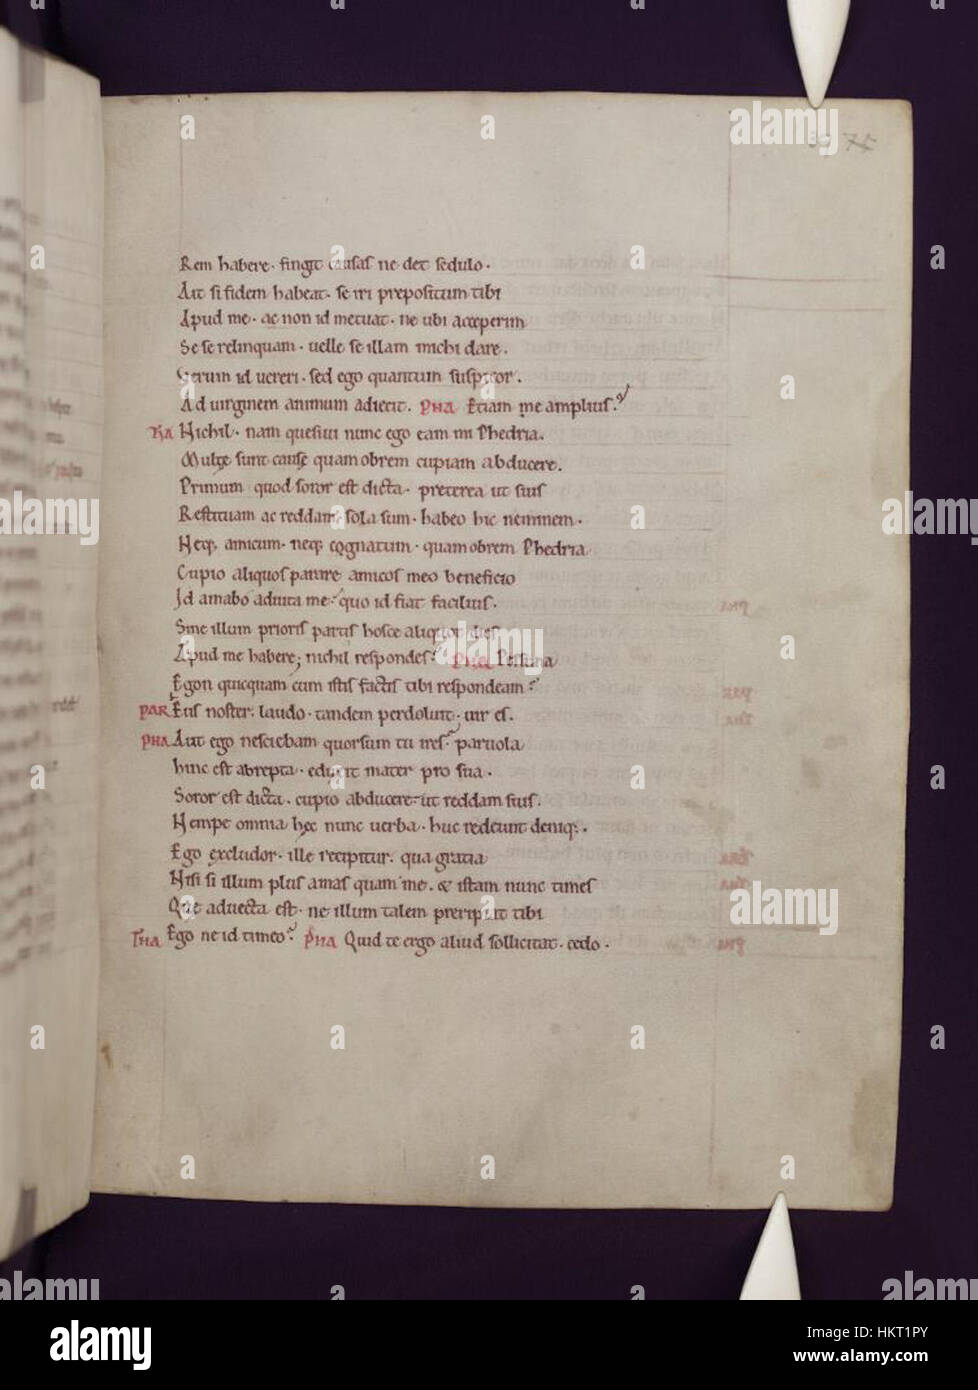 39 75
Rem habere. fingit causas ne det sedulo.
Ait si fidem habeat. se iri prepositum tibi
Apud me. ac non id metuat. ne ubi acceperim
Se se relinquam. uelle se illam michi dare.
Uerum id uereri. sed ego quantum suspicor.
Ad uirginem animum adiecit. PHA Etiam me amplius?
THA Nichil. nam quesiui nunc ego eam mi Phedria.
Multe sunt cause quamobrem cupiam abducere.
Primum quod soror est dicta. preterea ut suis
Restituam ac reddam. sola sum. habeo hic neminem.
Neq; amicum. neq; cognatum. quamobrem Phedria
Cupio aliquos parare amicos meo beneficio
Id amabo adiuta me. quo id fiat facilius.
Sine illum prioris partis hosce aliquot dies
Apud me habere; nichil respondes? PHE Pessuma
Egon quicquam cum istis factis tibi respondeam?
PAR Eus noster. laudo. tandem perdoluit. uir es.
PHA Aut ego nesciebam quorsum tu ires. paruola
hinc est abrepta. eduxit mater pro sua.
Soror est dicta. cupio abducere. ut reddam suis.
Nempe omnia hec nunc uerba. huc redeunt deniq;.
Ego excludor. ille recipitur. qua gratia
Nisi si illum plus amas quam me. & istam nunc times
Que aduecta est. ne illum talem preripiat tibi
THA Ego ne id timeo? PHA Quid te ergo aliud sollicitat. cedo.
alamy
a
alamy
Image ID: HKT1PY
www.alamy.com